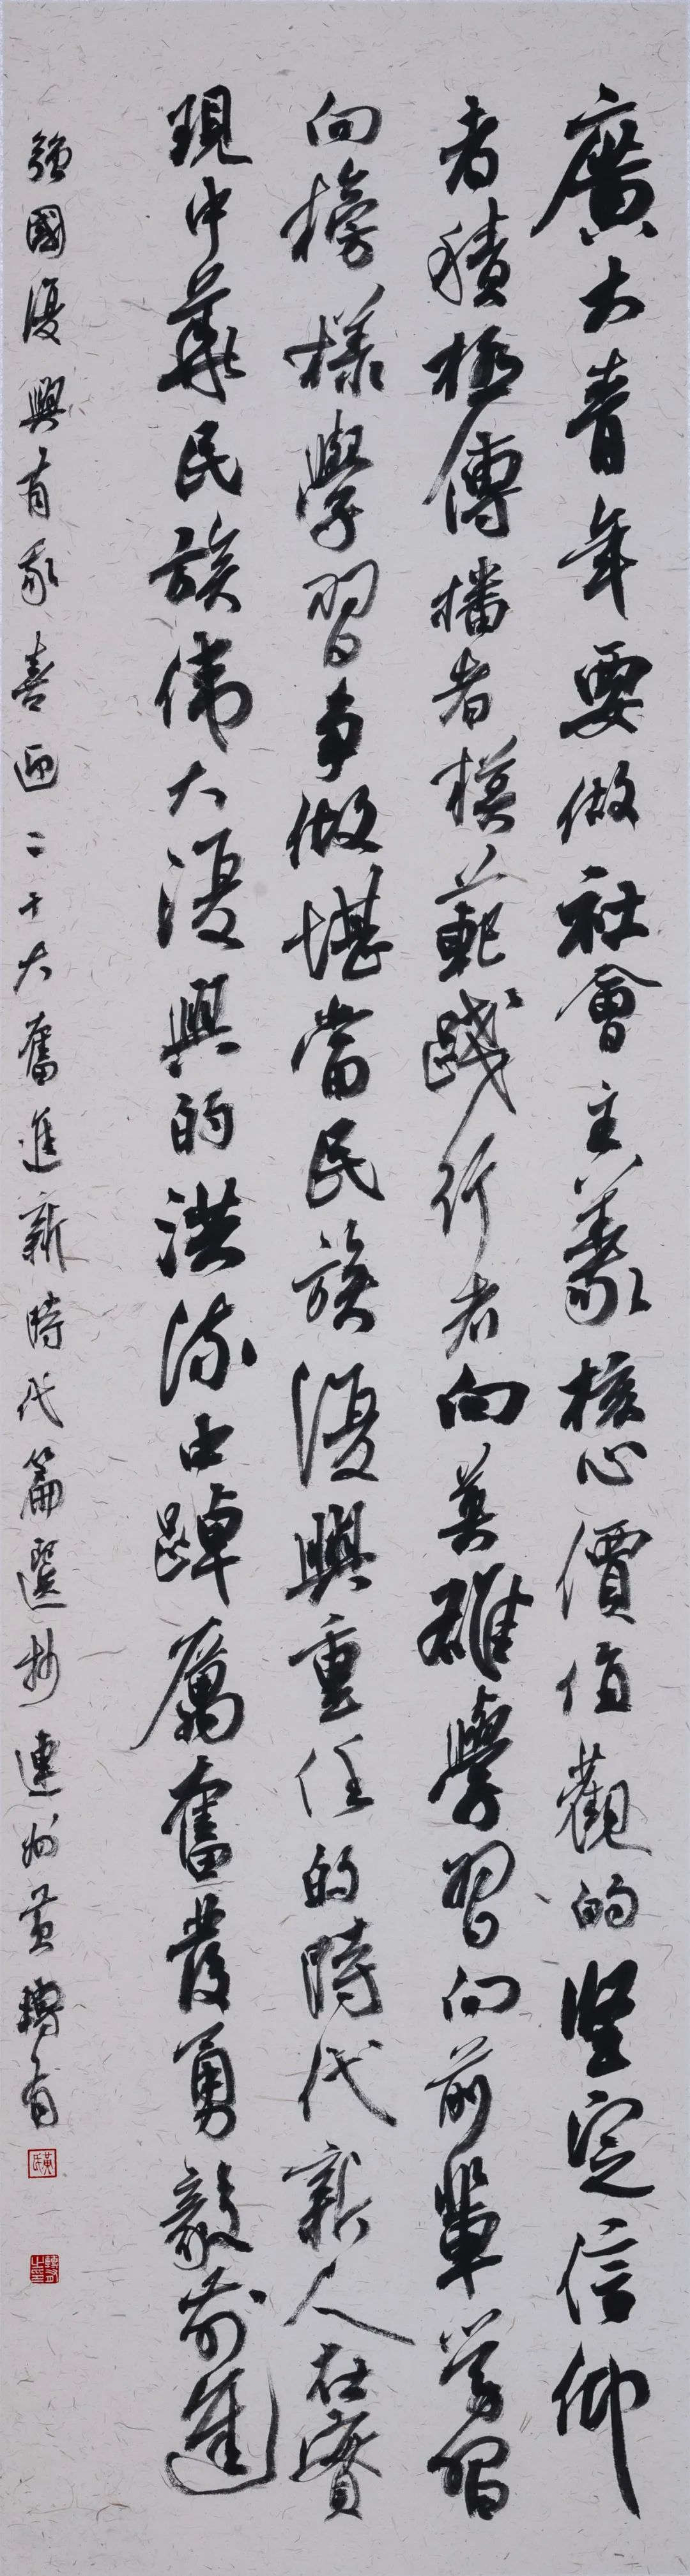 廣大青年要做社會主義核心價值觀的堅定信仰
者積極傳播者模範踐行者向英雄學習向前輩学習
向榜樣學習爭做堪當民族復興重任的時代新人在實
現中華民族偉大復興的洪流中踔厲奮發勇毅前進
強國復興有我喜迎二十大奮進新時代篇選抄連州黃
黃氏